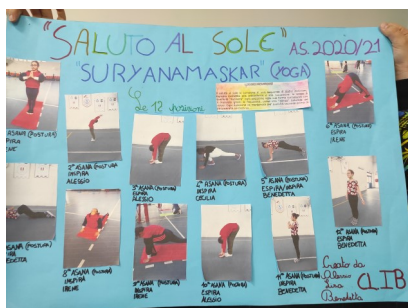 "SALUTO AL SOLE" A.S. 2020/21
"SURYANAMASKAR" (YOGA)
Le 12 posizioni
ASANA (POSTURA)
IRENE
2° ASANA (POSTURA)
INSPIRA
ALESSIO
3° ASANA (POSTURA)
ESPIRA
ALESSIO
4° ASANA (POSTURA)
INSPIRA
CECILIA
5° ASANA (POSTURA)
ESPIRA/INSPIRA
BENEDETTA
6° ASANA (POSTURA)
ESPIRA
IRENE
ASANA (POSTURA)
8° ASANA (POSTURA)
INSPIRA
IRENE
ASANA (POSTURA)
INSPIRA
IRENE
10° ASANA (POSTURA)
ESPIRA
ALESSIO
11° ASANA (POSTURA)
INSPIRA
BENEDETTA
12° ASANA (POSTURA)
ESPIRA
BENEDETTA
Creato da
Alessio
Benedetta
CLIB